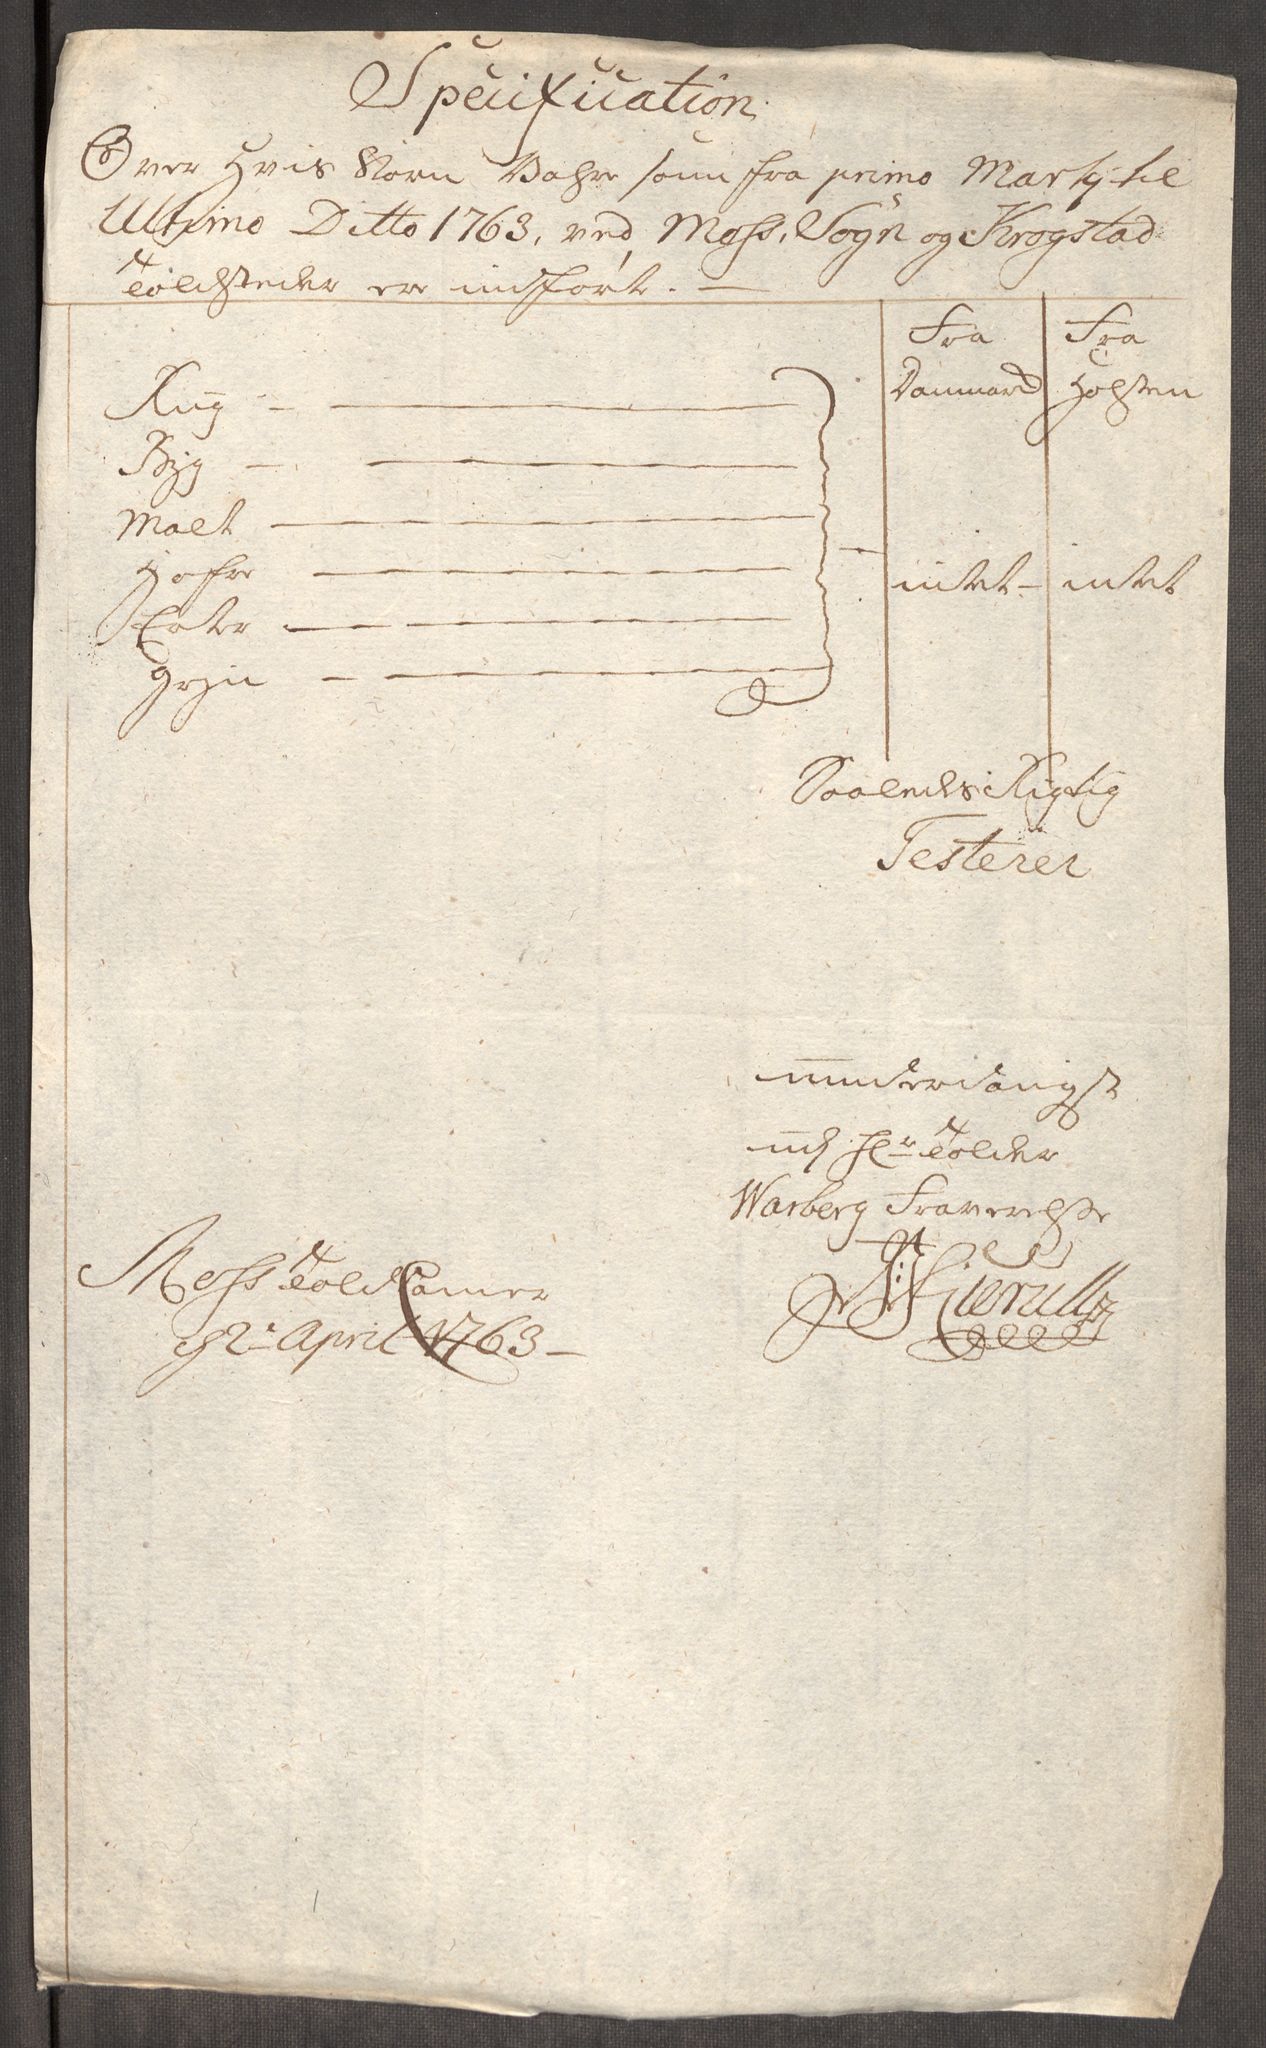 Specification
Over Hvis Korn Vahre som fra primo Martij til
Ultimo Ditto 1763, ved Moss, Sogn og Krogstad
Toldsteder er indført.
Fra Fra
Danmark Holsten
Rug
Byg
Malt
Hafre
Erter
Gryn
intet intet
Saaledes Rigtig
Testerer
underdanigst
udj Hr Tolder
Warberg Fraværelse
Moss Told Camer
d 2 April 1763